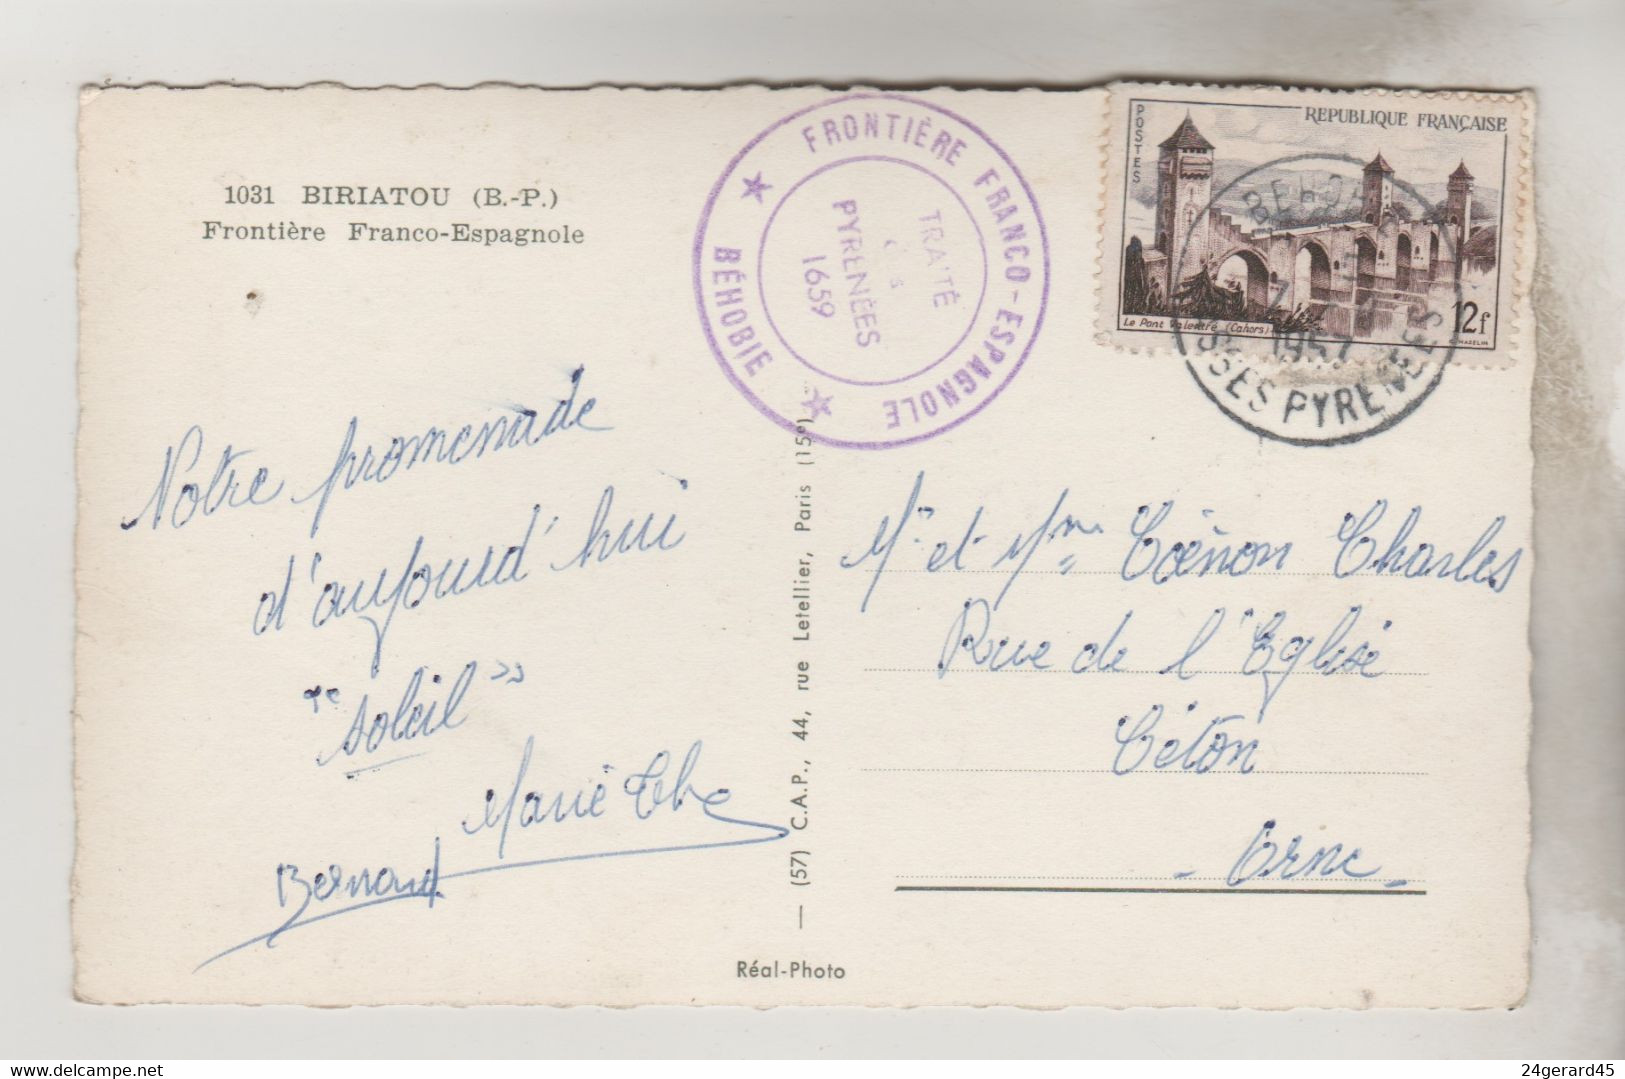 1031 BIRIATOU (B.-P.)
Frontière Franco-Espagnole
FRONTIÈRE FRANCO-ESPAGNOLE
★ BÉHOBIE ★
TRAITÉ
des
PYRENÉES
1659
POSTES
REPUBLIQUE FRANÇAISE
Le Pont Valentré (Cahors)
12f
BEHOBIE
1957
BSSES PYRENEES
Notre promenade
d'aujourd'hui
"soleil"
Marie Thé
Bernard
Mr et Mme Coënon Charles
Rue de l'Eglise
Céton
- Orne -
— (57) C.A.P., 44, rue Letellier, Paris (15e)
Réal-Photo
delcampe.net
24gerard45